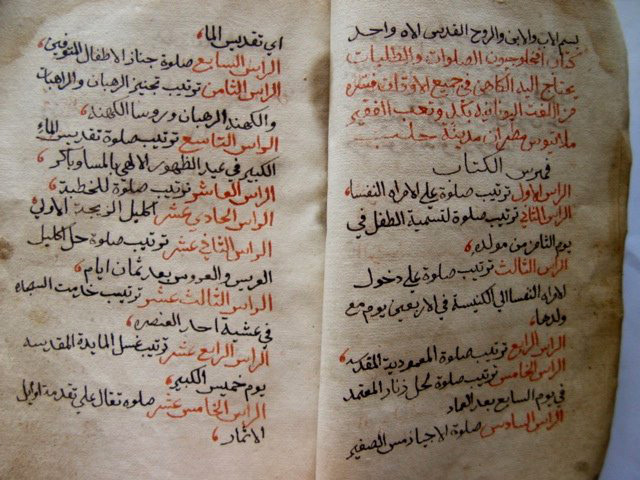 بسم الاب والابن والروح القدس الاه واحد
كتاب افخولوجيون الصلوات والطلبات
يحتاج اليه الكاهن في جميع الاوقات فسره
من اللغت اليونانية بكد وتعب الفقير
ملاتيوس مطران مدينة حلب
فهرس الكتاب
الراس الاول ترتيب صلوة علي الامراه النفسا،
الراس الثاني ترتيب صلوة لتسمية الطفل في
يوم الثامن من مولده،
الراس الثالث ترتيب صلوة علي دخول
الامراه النفسا الي الكنيسة في الاربعين يوم مع
ولدها،
الراس الرابع ترتيب صلوة المعمودية المقدسه
الراس الخامس ترتيب صلوة لحل زنار المعتمد
في يوم السابع بعد العماد
الراس السادس صلوة الاجيازمس الصغير
اي تقديس الما،
الراس السابع صلوة جناز الاطفال المتوفين،
الراس الثامن ترتيب تجنيز الرهبان والراهبات
والكهنه الرهبان وروسا الكهنه،
الراس التاسع ترتيب صلوة تقديس الماء
الكبير في عيد الظهور الالهي بالمسا وباكر
الراس العاشر ترتيب صلوة للخطبة،
الراس الحادي عشر اكليل الزيجة الاولي
الراس الثاني عشر ترتيب صلوة حل اكليل
العريس والعروس بعد ثمان ايام،
الراس الثالث عشر ترتيب خدمت السجده
في عشية احد العنصره،
الراس الرابع عشر ترتيب غسل المايدة المقدسه
يوم خميس الكبير،
الراس الخامس عشر صلوه تقال علي تقدمة اوايل
الاثمار،